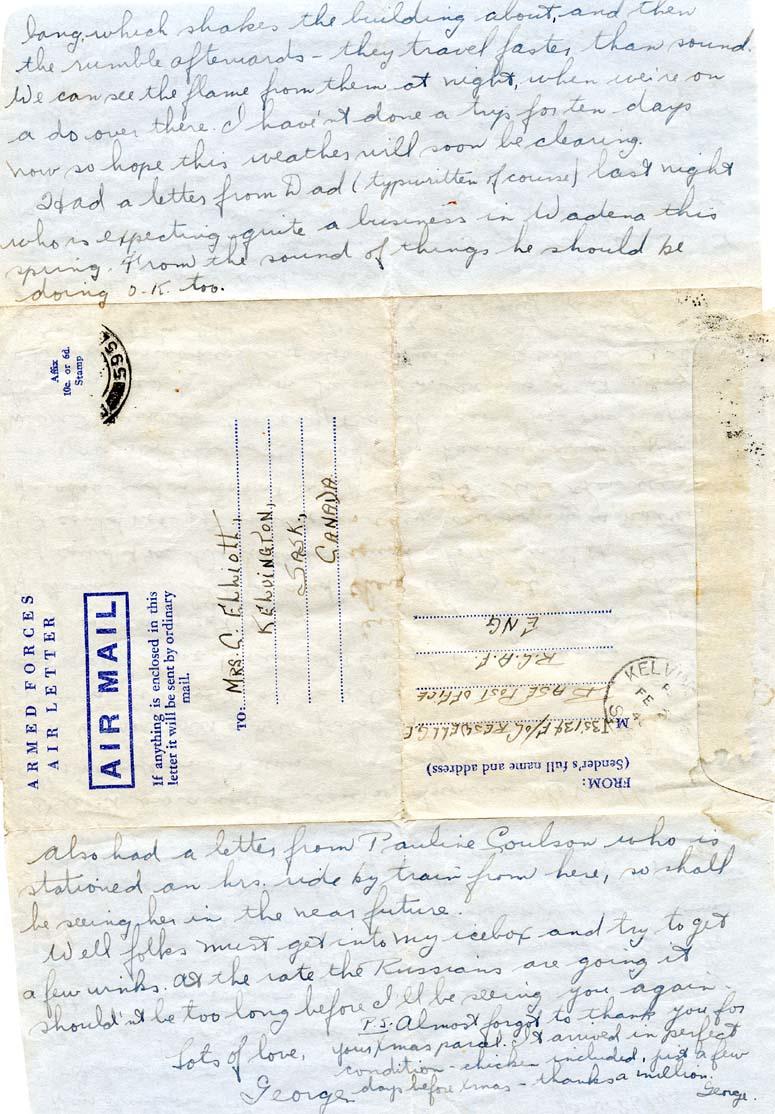 lang, which shakes the building about, and then
the rumble afterwards - they travel faster than sound.
We can see the flame from them at night, when we're on
a do over there. I haven't done a trip for ten days
now so hope this weather will soon be clearing.
Had a letter from Dad (typwritten of course) last night
who is expecting quite a business in Wadena this
spring. From the sound of things he should be
doing O.K. too.
ARMED FORCES
AIR LETTER
AIR MAIL
If anything is enclosed in this
letter it will be sent by ordinary
mail.
Affix
10c. or 6d.
Stamp
595
TO: MRS. G. Elliott,
KELVINGTON,
SASK.,
CANADA
FROM:
(Sender's full name and address)
M J35134 F/O CRESWELL G.E.
BASE POST OFFICE
R.C.A.F.
ENG
KELVIN
FE
also had a letter from Pauline Coulson who is
stationed an hrs. ride by train from here, so shall
be seeing her in the near future.
Well folks must get into my icebox and try to get
a few winks. At the rate the Russians are going it
shouldn't be too long before I'll be seeing you again.
Lots of love,
George
P.S. Almost forgot to thank you for
your Xmas parcel. It arrived in perfect
condition - chicken included, just a few
days before Xmas - thanks a million.
George.